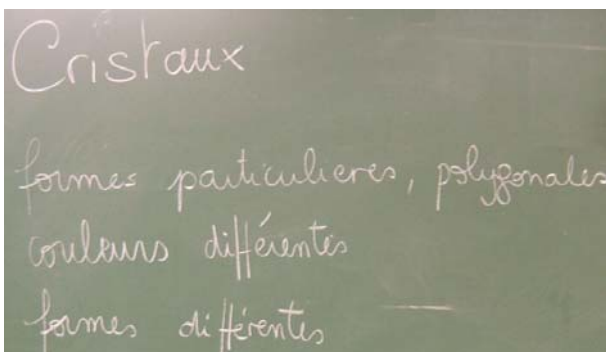 Cristaux
formes particulieres, polygonales
couleurs différentes
formes différentes